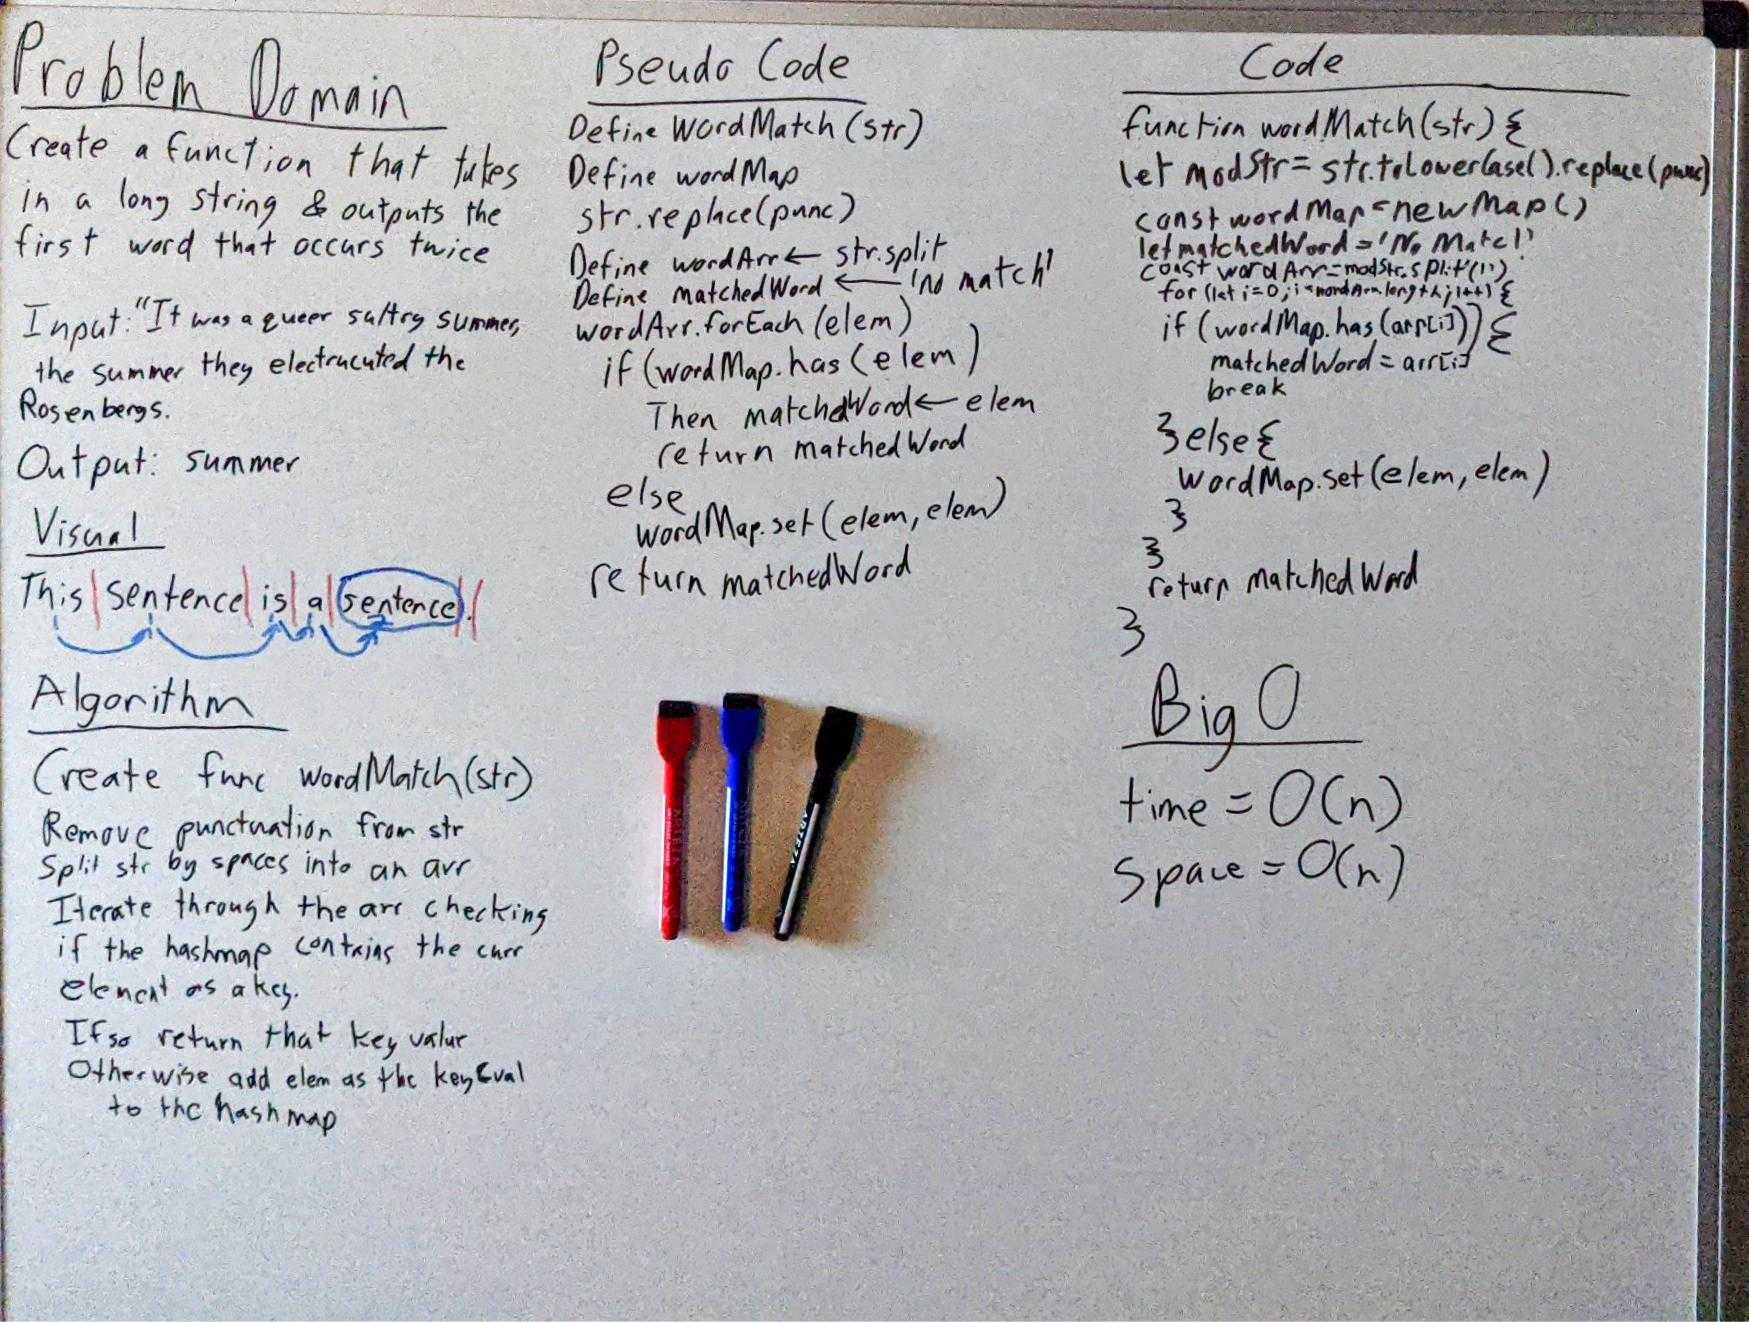 Problem Domain
Create a function that takes
in a long string & outputs the
first word that occurs twice
Input: "It was a queer sultry summer,
the summer they electrucuted the
Rosenbergs.
Output: summer
Visual
This | sentence | is | a | sentence | . |
Algorithm
Create func wordMatch(str)
Remove punctuation from str
Split str by spaces into an arr
Iterate through the arr checking
if the hashmap contains the curr
element as a key.
If so return that key value
Otherwise add elem as the key & val
to the hashmap
Pseudo Code
Define wordMatch(str)
Define wordMap
str.replace(punc)
Define wordArr ← str.split
Define matchedWord ← 'no match'
wordArr.forEach(elem)
if(wordMap.has(elem)
Then matchedWord ← elem
return matchedWord
else
wordMap.set(elem, elem)
return matchedWord
Code
function wordMatch(str) {
let modStr = str.toLowerCase().replace(punc)
const wordMap = new Map()
let matchedWord = 'No Match'
const wordArr = modStr.split(' ')
for (let i=0; i<wordArr.length; i++) {
if (wordMap.has(arr[i])) {
matchedWord = arr[i]
break
} else {
wordMap.set(elem, elem)
}
}
return matchedWord
}
Big O
time = O(n)
space = O(n)
ARTEZA